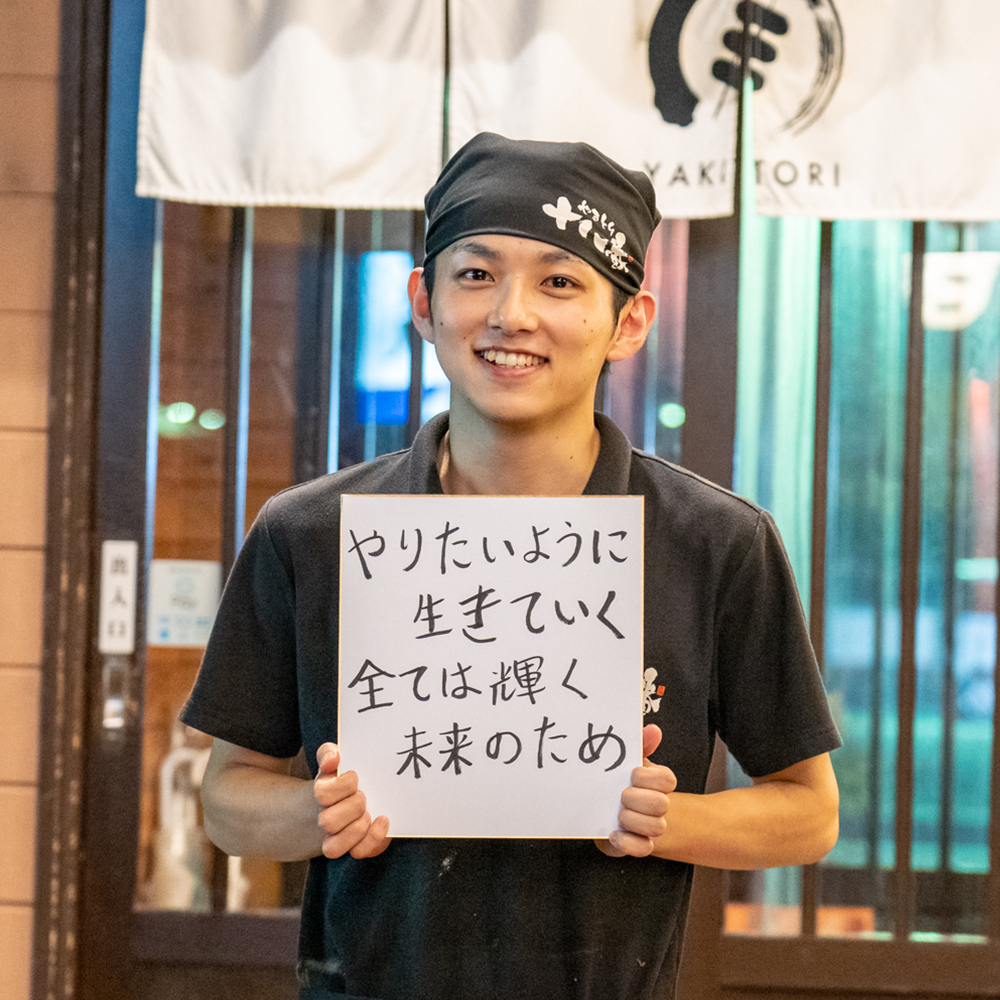 YAKITORI
やきとり
やりたいように
生きていく
全ては輝く
未来のため